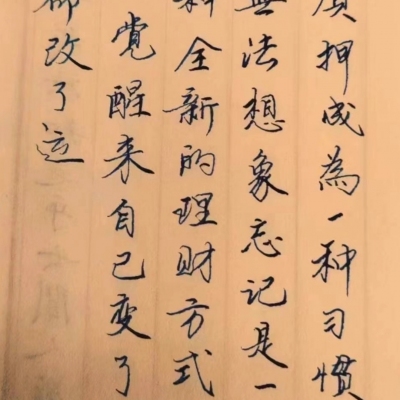 质押成為一种习惯
無法想象忘记是一
种全新的理财方式
觉醒来自己变了
都改了运